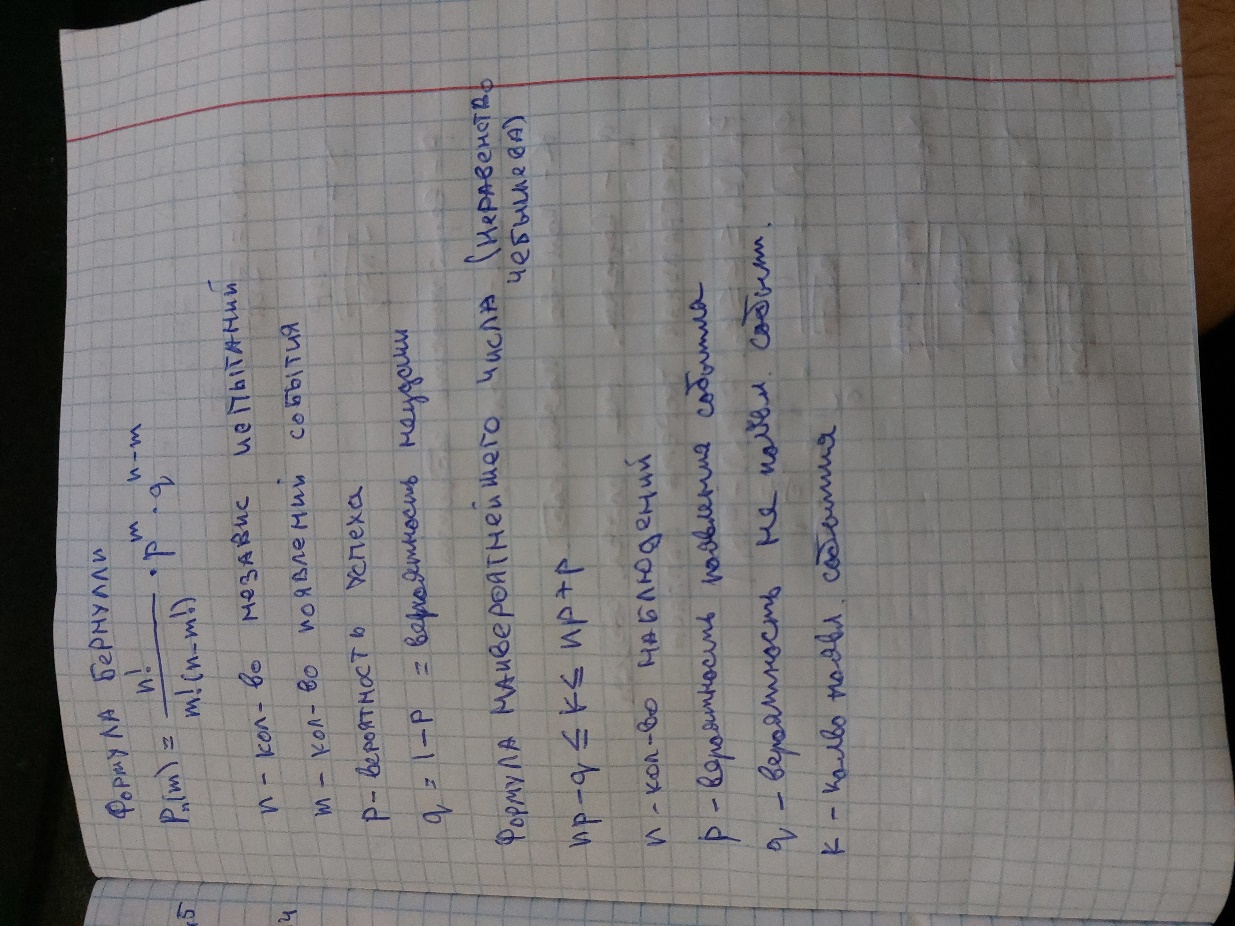 ФОРМУЛА БЕРНУЛЛИ
Pₙ(m) = n! / m!(n-m!) · p^m · q^n-m
n - кол-во независ испытаний
m - кол-во появлений события
p - вероятность успеха
q = 1-P = вероятность неудачи
ФОРМУЛА НАИВЕРОЯТНЕЙШЕГО ЧИСЛА (НЕРАВЕНСТВО
ЧЕБЫШЕВА)
np-q ≤ k ≤ np+p
n - кол-во наблюдений
p - вероятность появления события
q - вероятность не появл. событи.
k - колво появл. события
.5
ч